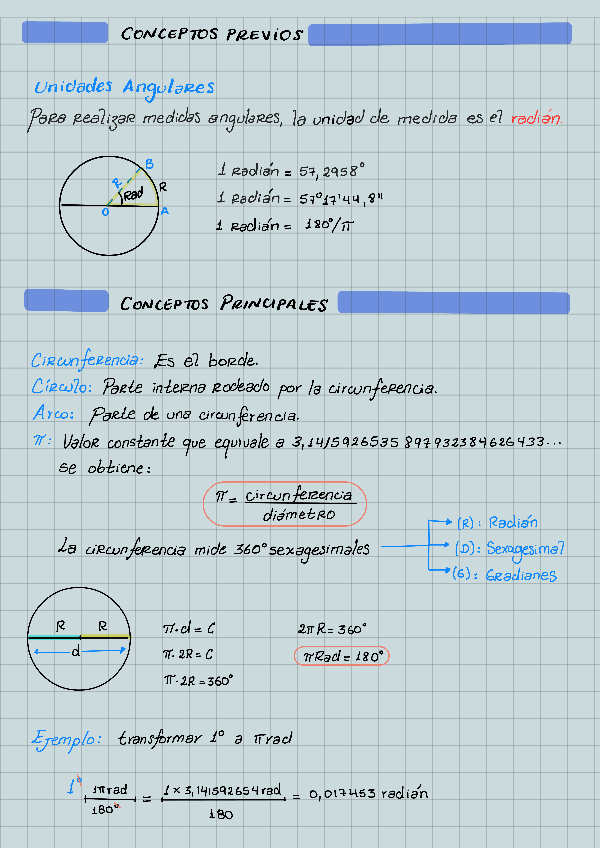 CONCEPTOS PREVIOS
Unidades Angulares
Para realizar medidas angulares, la unidad de medida es el radián.
B
R
R
Rad
O
A
1 radián = 57,2958°
1 radián = 57°17'44,8"
1 radián = 180°/π
CONCEPTOS PRINCIPALES
Circunferencia: Es el borde.
Círculo: Parte interna rodeado por la circunferencia.
Arco: Parte de una circunferencia.
π: Valor constante que equivale a 3,1415926535 897932384626433...
se obtiene:
π = circunferencia
diámetro
La circunferencia mide 360° sexagesimales
(R): Radián
(D): Sexagesimal
(G): Gradianes
R R
d
π·d = C
π·2R = C
π·2R = 360°
2πR = 360°
πRad = 180°
Ejemplo: transformar 1° a πrad
1° 1πrad = 1 x 3,141592654 rad = 0,017453 radián
180° 180